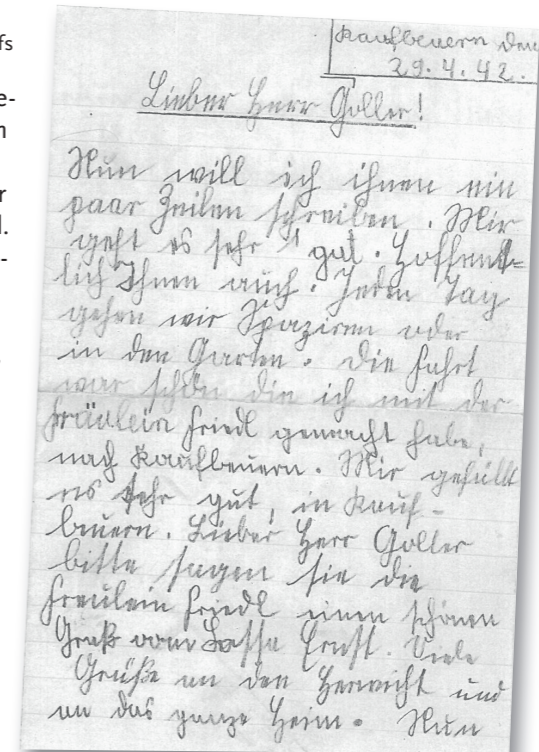 fs
e-
n
r
l.
-
Kaufbeuern den
29.4.42.
Lieber Herr Goller!
Nun will ich ihnen ein
paar Zeilen schreiben. Mir
geht es sehr gut. Hoffent=
lich Ihnen auch. Jeden Tag
gehen wir Spaziren oder
in den Garten. Die Fahrt
war schön die ich mit der
Fräulein Friedl gemacht habe,
nach Kaufbeuern. Mir gefällt
es sehr gut, in Kauf-
beuern. Lieber Herr Goller
bitte sagen sie die
Freulein Friedl einen schönen
Gruß vom Lossa Ernst. Viele
Grüße an den und
an das ganze Heim. Nun